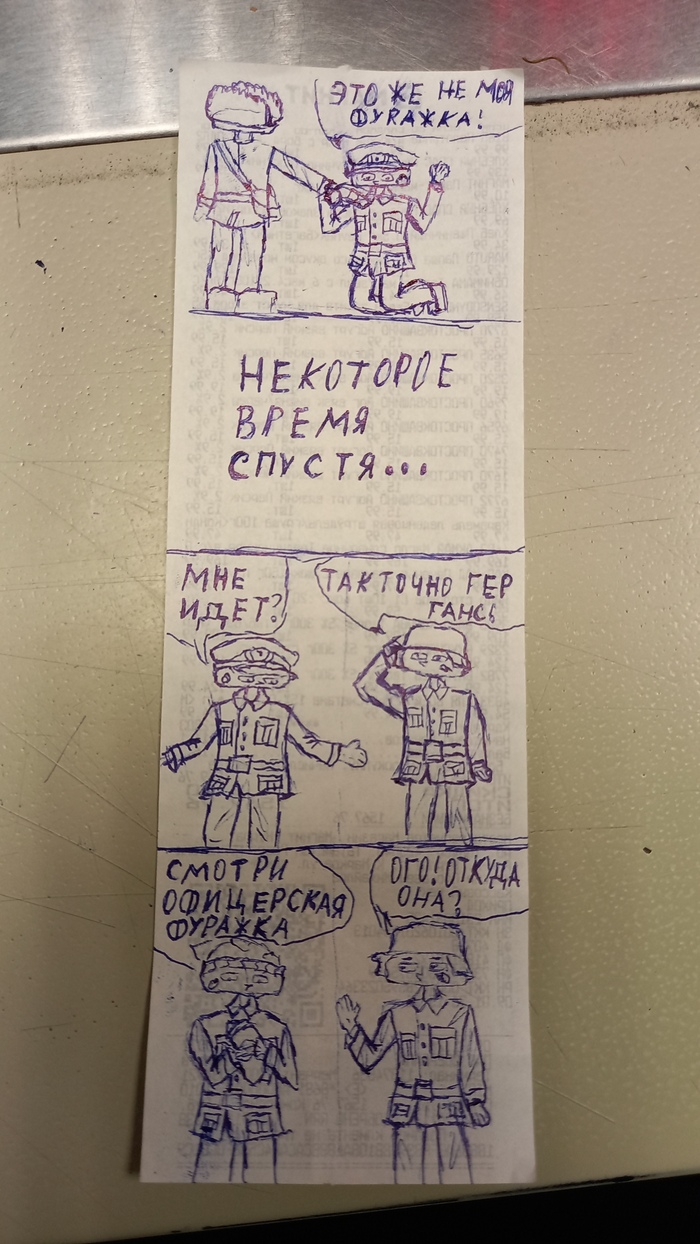 ЭТО ЖЕ НЕ МОЯ
ФУRАЖКА!
НЕКОТОРОЕ
ВРЕМЯ
СПУСТЯ...
МНЕ
ИДЕТ?
ТАК ТОЧНО ГЕР
ГАНС!
СМОТРИ
ОФИЦЕРСКАЯ
ФУRАЖКА
ОГО! ОТКУДА
ОНА?